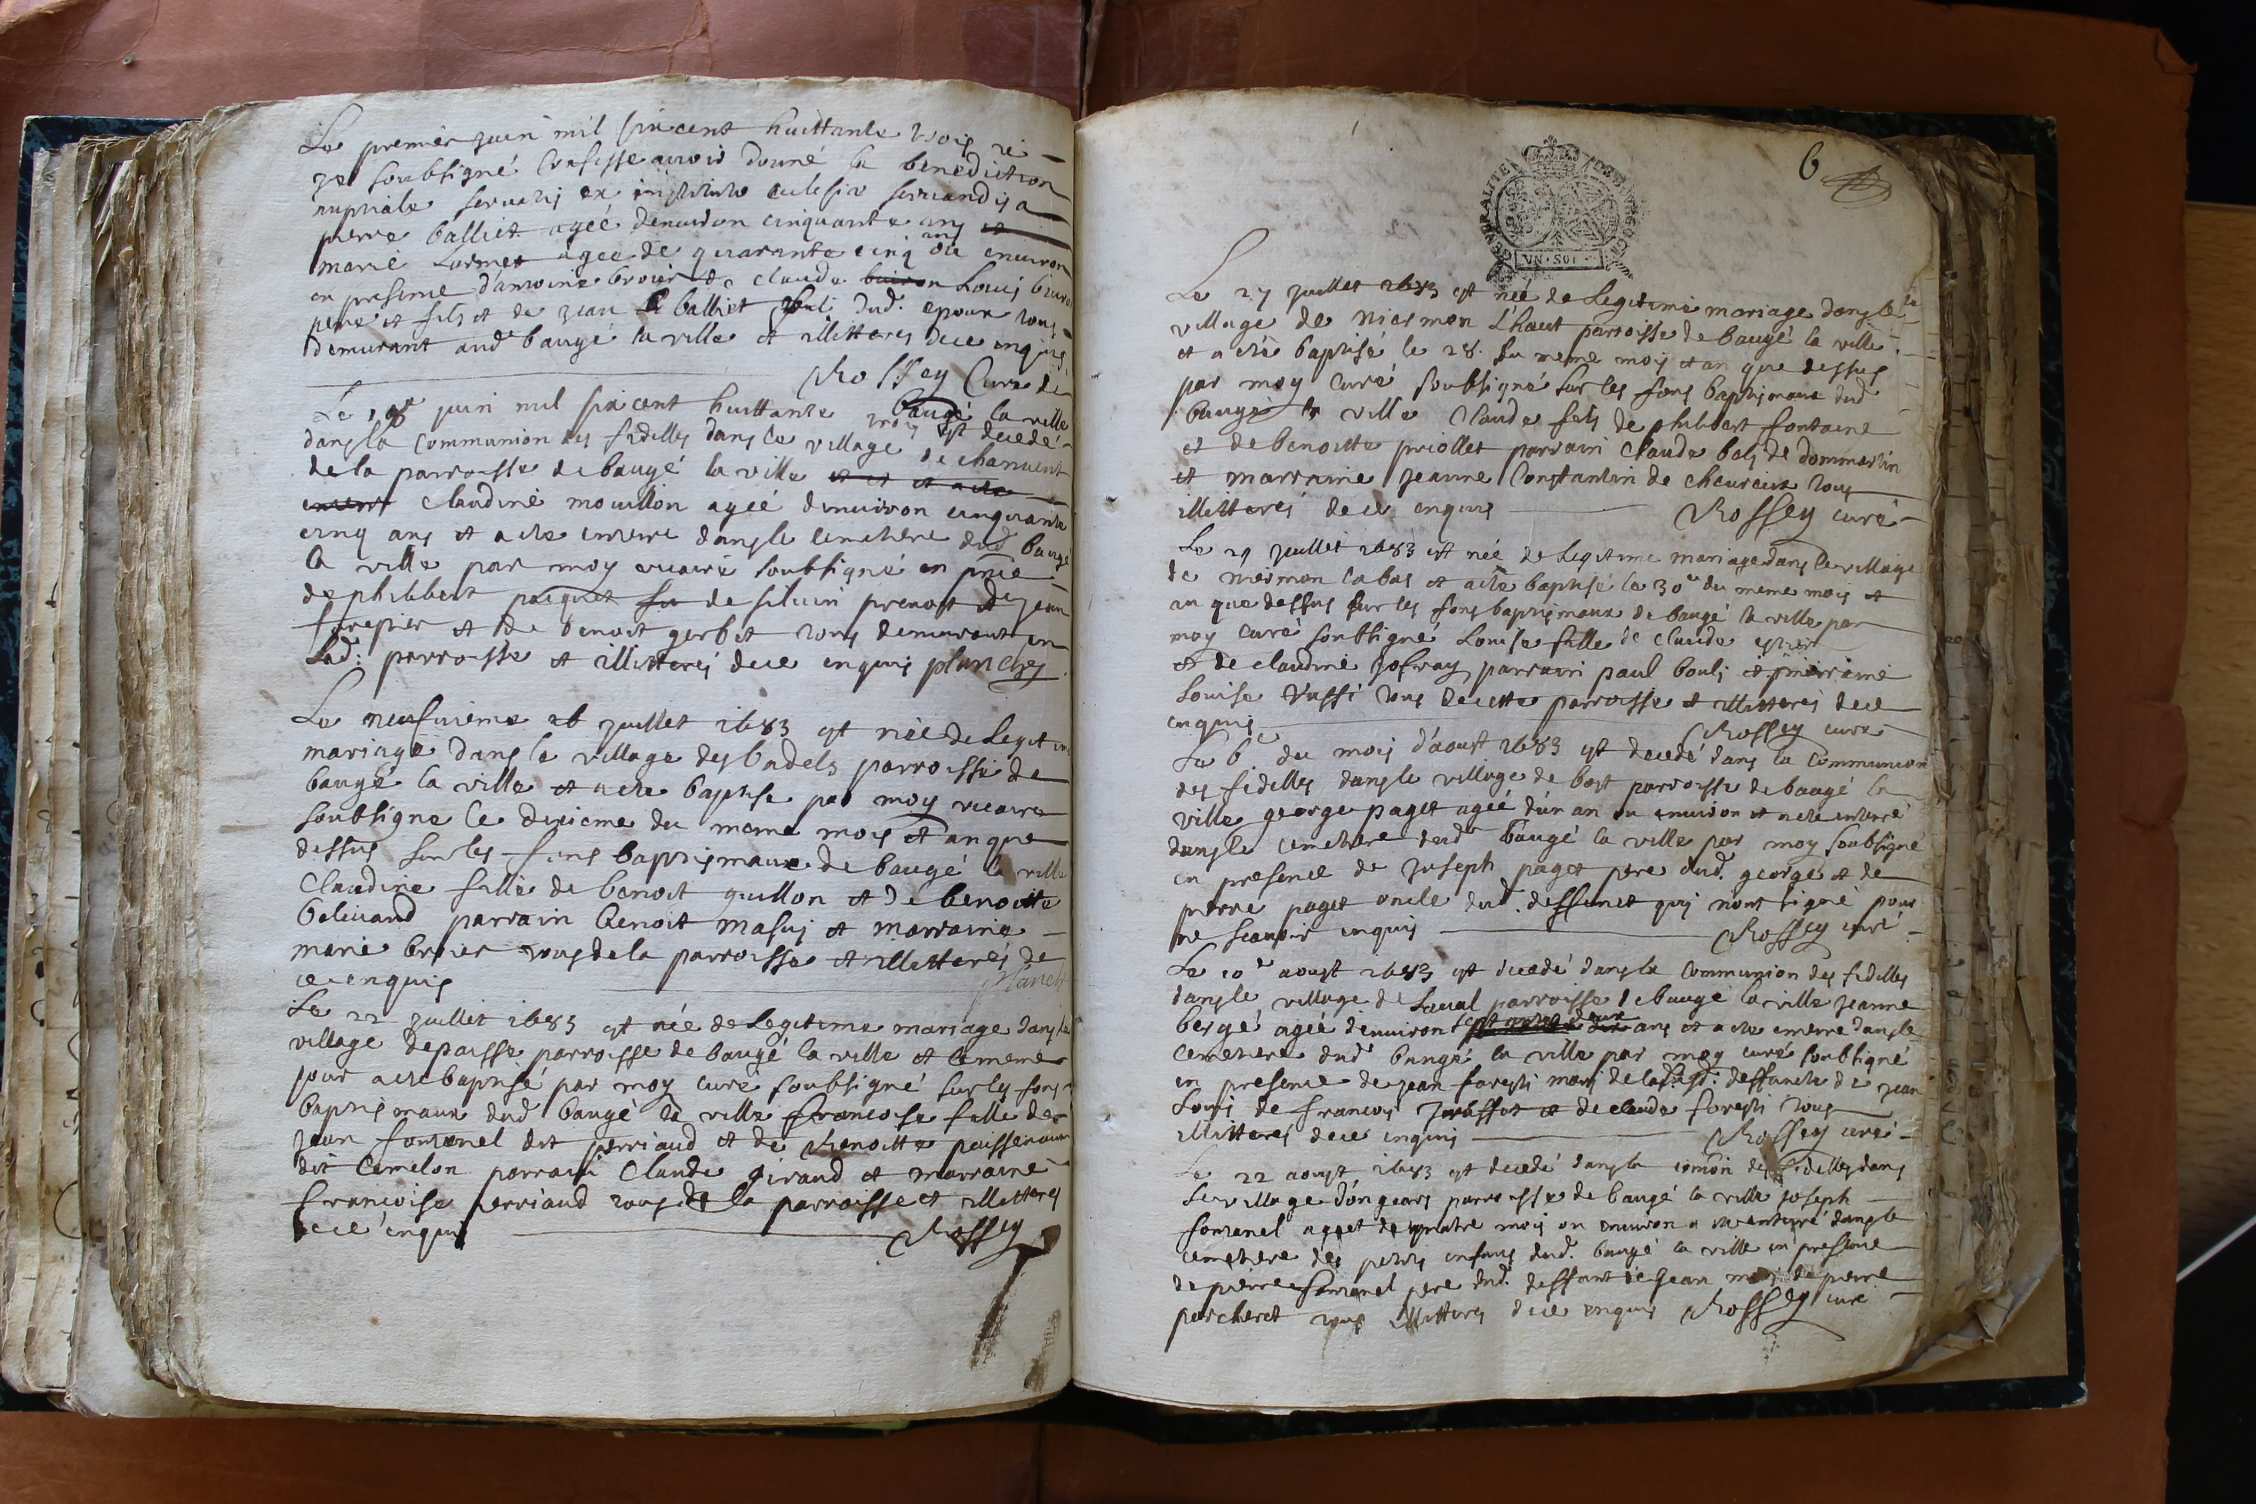 Le premier juin mil six cent huittante trois
je soubsigné confesse avoir donné la benediction
nuptiale servatis ex instituto eclesia servandis a
pierre balliet agée denuiron cinquante ans
marie agee de quarante cinq ans ou enuiron
en presence d'antoine broier de claude Louis
pere et fils et de jean balliet dud. epoux tous
demurant aud baugé la ville et illitteres dece enquis
Rossey Curé de
baugé la ville
Le juin mil six cent huittante trois est decedé
dans la Communion des fidelles dans le village de chanuent
de la parroisse de baugé la ville
Claudine mouillon agée denuiron cinquante
cinq ans et a este enterre dans le cemetiere dud baugé
la ville par moy vicaire soubsigné en pnce
de philibbert paquet de siluin prenost et de jean
et de benoist gerbet tous demurant en
lad. parroisse et illitterés dece enquis planchez
Le neufuieme juillet 1683 est née de Legitime
mariage dans le village des badels parroisse de
baugé la ville et a este baptise par moy vicaire
soubsigne le dixieme du meme mois et an que
dessus sur les fons baptismaux de baugé la ville
Claudine fille de benoist guillon et de benoitte
beliuand parrain benoit masui et marraine
marie broier tous de la parroisse et illitterés de
ce enquis
Le 22 juillet 1683 est née de Legitime mariage dans le
village depaisse parroisse de baugé la ville et le meme
jour a este baptisé par moy curé soubsigné sur les fons
baptismaux dud baugé la ville francoise fille de
jean fontanel dit perriaud et de Benoitte
dit Camelon parrain Claude Giraud et marraine
francoise perriaud tous de la parroisse et illitteres
de ce enquis Rossey
6
GENERALITE DE BOURGOGNE
VN·SOL
Le 27 juillet 1683 est née de Legitime mariage dans le
village de niermon l'haut parroisse de baugé la ville
et a esté baptisé le 28. du meme mois et an que dessus
par moy curé soubsigné sur les fons baptismaux dud
baugé la ville Claude fils de philibert fontaine
et de benoitte priollet parrain Claude bols de dommartin
et marraine jeanne Constantin de cheureux tous
illitterés de ce enquis Rossey curé
Le 29 juillet 1683 est née de Legitime mariage dans le village
de niermon labas et a esté baptisé le 30e du meme mois et
an que dessus sur les fons baptismaux de baugé la ville par
moy curé soubsigne Louise fille de claude
et de claudine jofray parrain paul bouli et marraine
Louise Vussi tous de cette parroisse et illitterés de ce
enquis Rossey curé
Le 6e du mois d'aoust 1683 est decedé dans la Communion
des fidelles dans le village de bost parroisse de baugé la
ville george paget agée d'un an ou enuiron et a este enterré
dans le cemetiere dud baugé la ville par moy soubsigné
en presence de joseph paget pere dud. george et de
pierre paget oncle dud. deffunct qui n'ont signé pour
ne scauoir enquis Rossey curé
Le 10e aoust 1683 est decedé dans la Communion des fidelles
dans le village de Laual parroisse de baugé la ville jeanne
bergé agée d'enuiron ans et a este enterre dans le
cemetiere dud baugé la ville par moy curé soubsigné
en presence de jean foresti mari de lad. deffuncte de jean
Louis de francois et de claude foresti tous
illitteres de ce enquis Rossey curé
Le 22 aoust 1683 est decedé dans la comōn des fidelles dans
Le village d'ongears parroisse de baugé la ville joseph
fontanel aget de quatre mois ou enuiron a este enterré dans le
cemetiere des petits enfans dud. baugé la ville en presence
de pierre fontanel pere dud. deffunt de jean de pierre
percheret tous illitteres de ce enquis Rossey curé